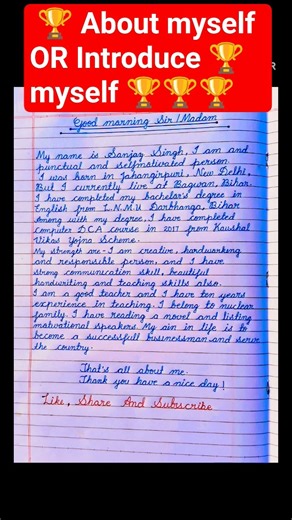 🏆 About myself
OR Introduce 🏆
myself 🏆🏆🏆
Good morning Sir/Madam
My name is Sanjay Singh, I am and
punctual and selfmotivated person.
I was born in Jahangirpuri, New Delhi,
But I currently live at Bagwan, Bihar.
I have completed my bachelor's degree in
English from L.N.M.U Darbhanga, Bihar
Among with my degree, I have completed
computer DCA course in 2017 from Kaushal
Vikas Yojna Scheme.
My strength are - I am creative, hardworking
and responsible person, and I have
strong communication skill, beautiful
handwriting and teaching skills also.
I am a good teacher and I have ten years
experience in teaching. I belong to nuclear
family. I have reading a novel and listing
motivational speakers. My aim in life is to
become a successfull businessman and serve
the country.
That's all about me.
Thank you have a nice day!
Like, Share And Subscribe